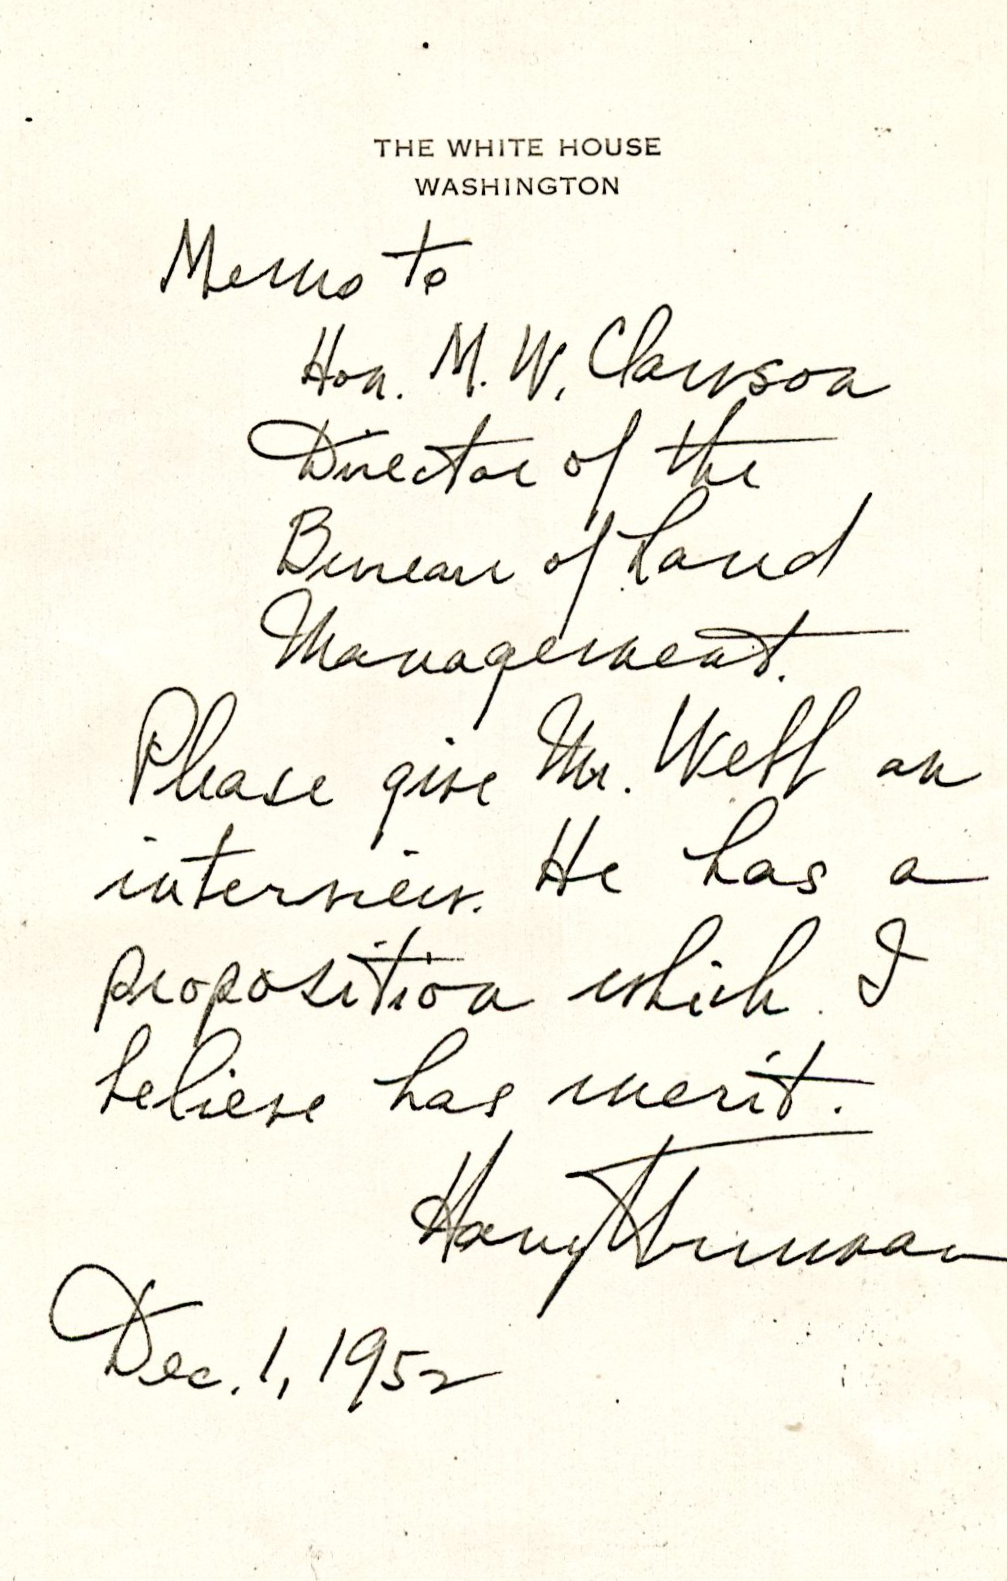 THE WHITE HOUSE
WASHINGTON
Memo to
Hon. M. W. Clawson
Director of the
Bureau of Land
Management.
Please give Mr. an
interview. He has a
proposition which I
believe has merit.
Harry Truman
Dec. 1, 1952